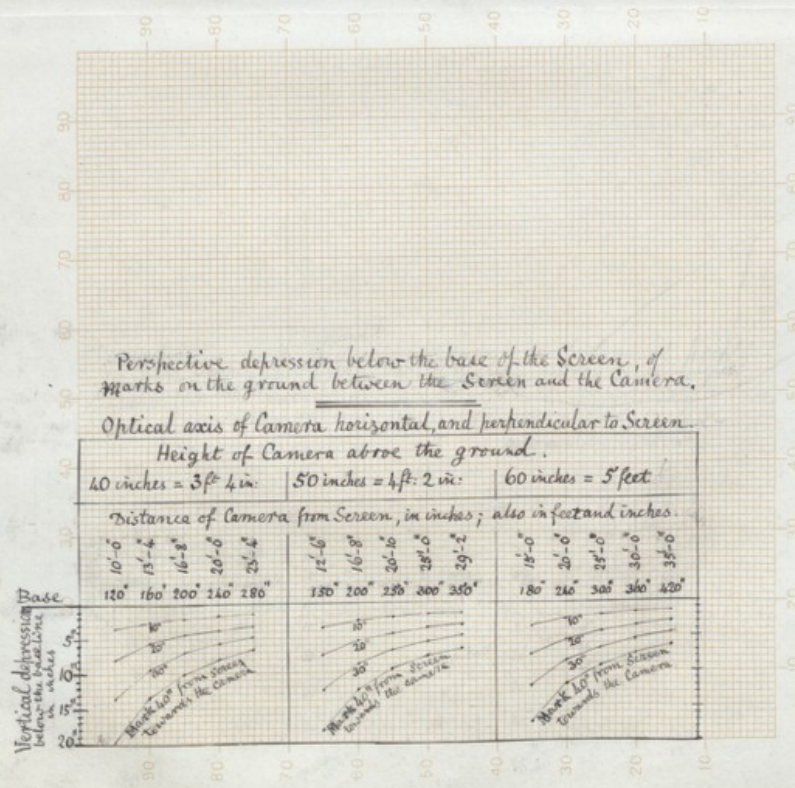 90 80 70 60 50 40 30 20 10
Perspective depression below the base of the Screen, of
Marks on the ground between the Screen and the Camera.
Optical axis of Camera horizontal, and perpendicular to Screen.
Height of Camera above the ground.
40 inches = 3 ft 4 in: 50 inches = 4 ft: 2 in: 60 inches = 5 feet
Distance of Camera from Screen, in inches; also in feet and inches.
10'-0" 13'-4" 16'-8" 20'-0" 23'-4" 12'-6" 16'-8" 20'-10" 29'-2" 15'-0" 20'-0" 25'-0" 30'-0" 35'-0"
Base 120" 160" 200" 240" 280" 150" 200" 250" 300" 350" 180" 240" 300" 360" 420"
Vertical depression
below the base line
in inches
5"
10"
15"
20"
10" 10" 10"
20" 20" 20"
30" 30"
Mark 40" from screen
towards the camera
Mark 40" from Screen
towards the camera
Mark 40" from Screen
towards the Camera
90 80 70 60 50 40 30 20 10
90
80
70
60
50
40